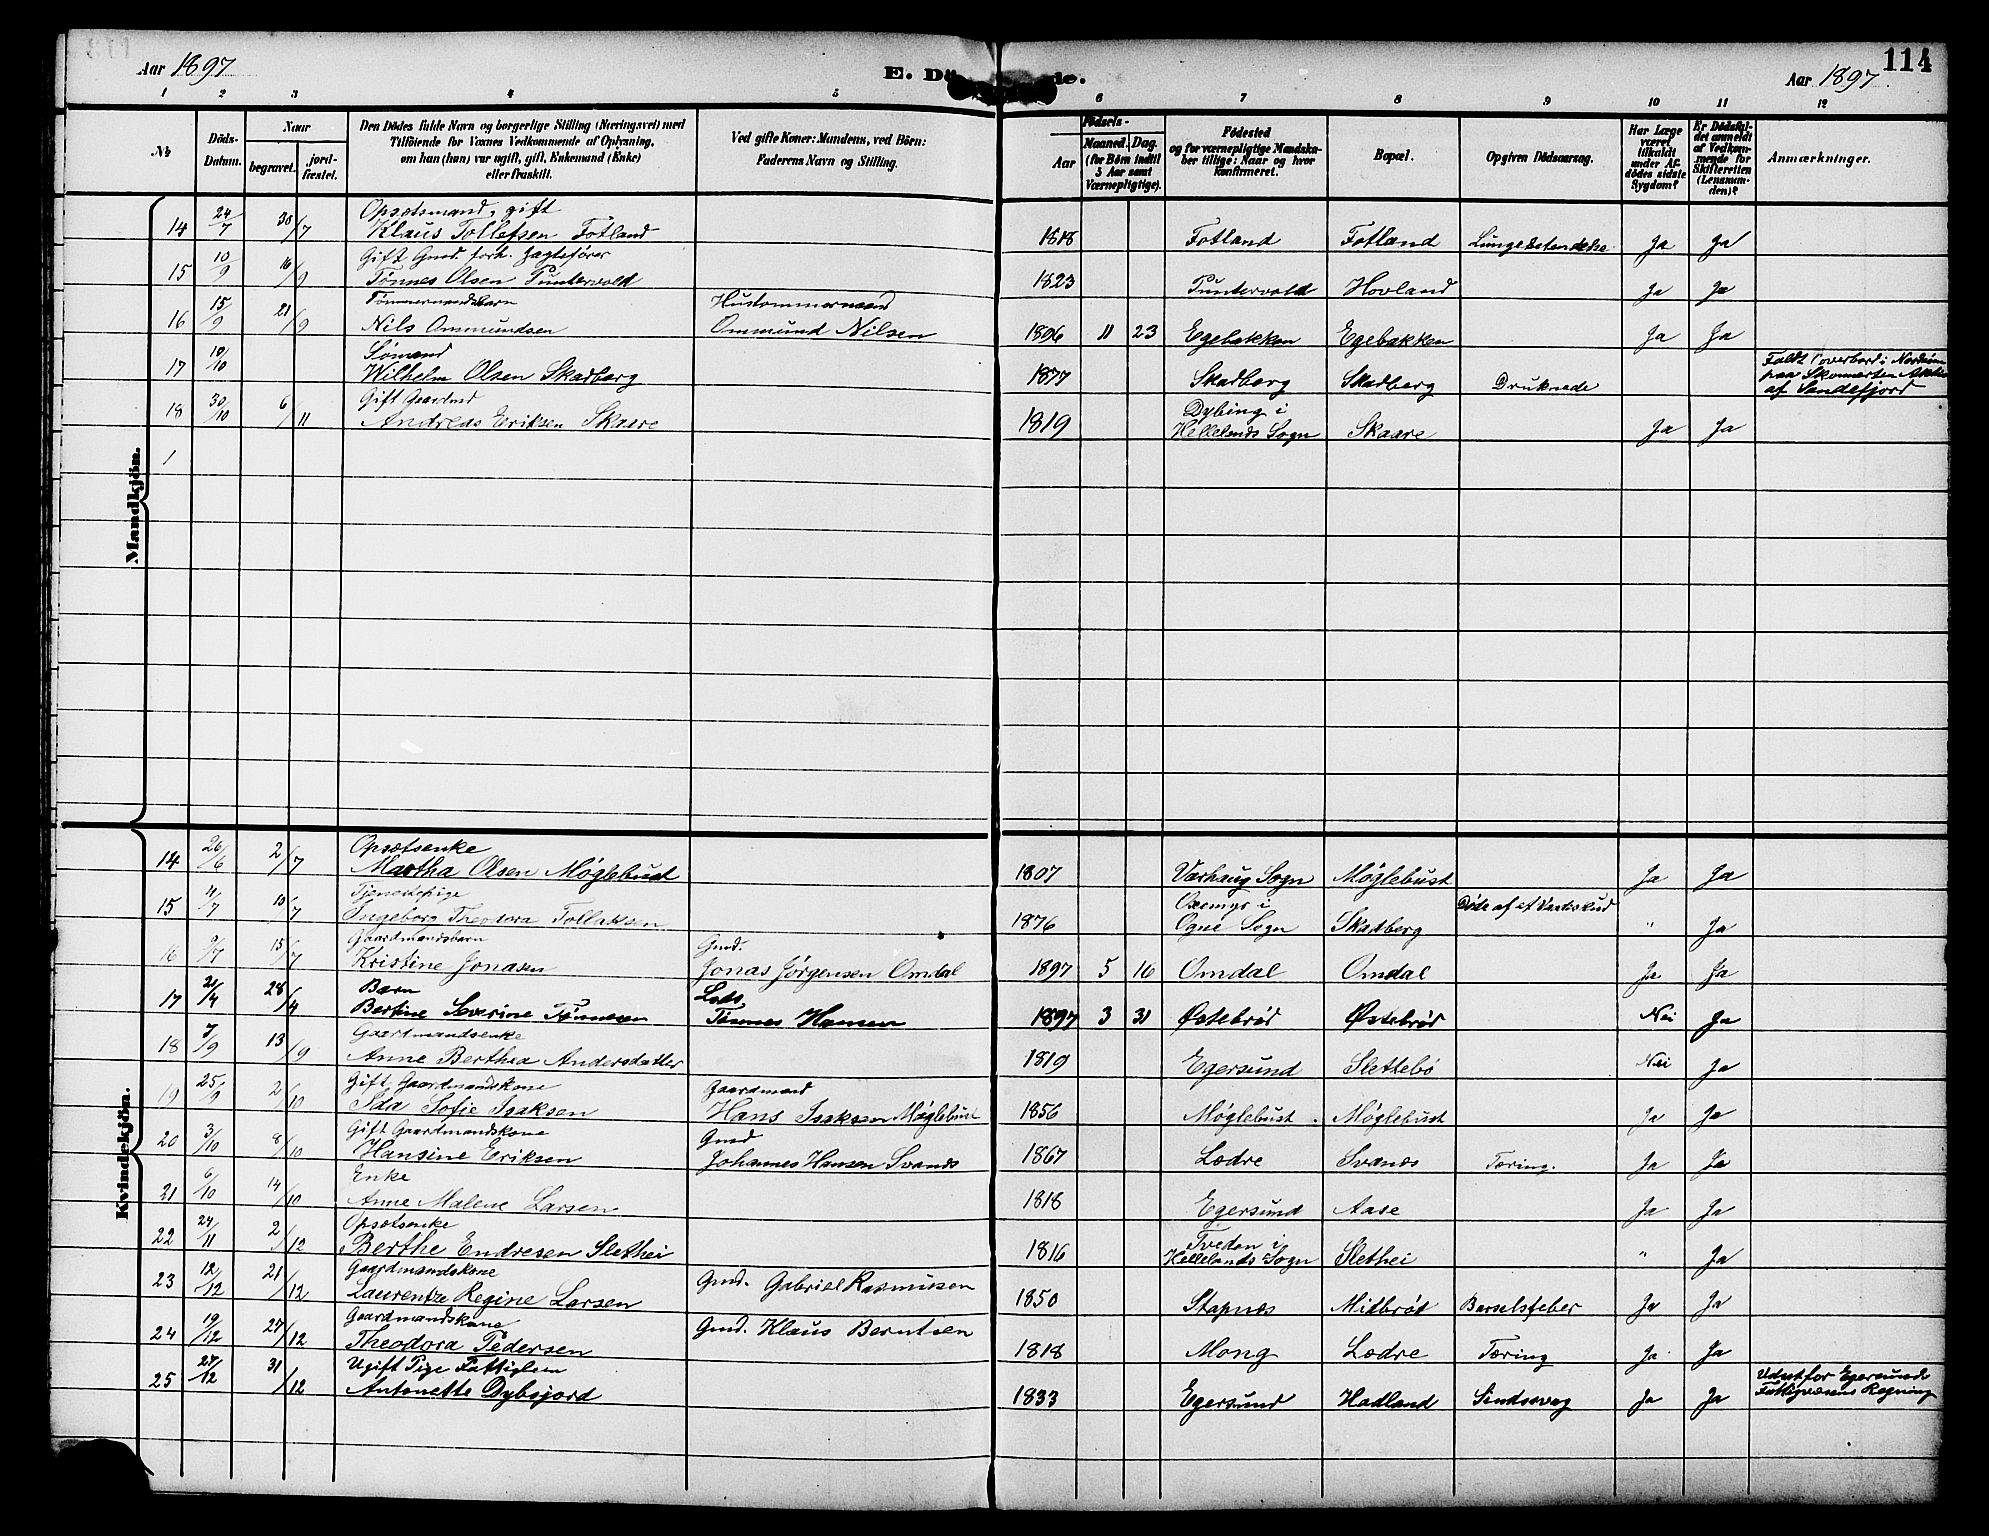 Aar 1897
E. Dö de.
114
Aar 1897
1 2 3 4 5 6 7 8 9 10 11 12
№
Döds-
Datum.
Naar
begravet.
jord-
fæstet.
Den Dödes fulde Navn og borgerlige Stilling (Næringsvei) med
Tilföiende for Voxnes Vedkommende af Oplysning,
om han (hun) var ugift, gift, Enkemand (Enke)
eller fraskilt.
Ved gifte Koner: Mandens, ved Börn:
Faderens Navn og Stilling.
Födsels-
Aar
Maaned.
Dag.
(for Börn indtil
5 Aar samt
Værnepligtige).
Födested
og for værnepligtige Mandska-
ber tillige: Naar og hvor
konfirmeret.
Bopæl.
Opgiven Dödsaarsag.
Har Læge
været
tilkaldt
under Af-
dödes sidste
Sygdom?
Er Dödsfal-
det anmeldt
af Vedkom-
mende for
Skifteretten
(Lensman-
den)?
Anmærkninger.
Mandkjön.
Opsætsmand, gift
14 24/7 30/7 Klaus Tollefsen Fotland 1818 Fotland Fotland Ja Ja
Gift Gmd. forh. Jagtefører
15 10/9 16/9 Tønnes Olsen Puntervold 1823 Puntervold Hovland Ja Ja
Tømmermandsbarn Hustommermand
16 15/9 21/9 Nils Ommundsen Ommund Nilsen 1896 11 23 Egebakken Egebakken Ja Ja
Sømand
17 10/10 Wilhelm Olsen Skadberg 1877 Skadberg Skadberg Druknede
Faldt overbord i Nordsøen
paa Skonnerten
af Sandefjord
Gift Gaardmd
18 30/10 6/11 Andreas Eriksen Skaare 1819 Dybing i
Hellelands Sogn Skaare Ja Ja
1
Kvindekjön.
Opsætsenke
14 26/6 2/7 Martha Olsen Møglebust 1807 Varhaug Sogn Møglebust Ja Ja
Tjenestepige
15 4/7 10/7 Ingeborg Theodora Tollaksen 1876
Ogne Sogn Skadberg Døde af et Vaadeskud " Ja
Gaardmandsbarn Gmd.
16 9/7 15/7 Kristine Jonasen Jonas Jørgensen Omdal 1897 5 16 Omdal Omdal Ja Ja
Barn Lods
17 21/4 28/4 Bertine Severine Tønnesen Tønnes Hansen 1897 3 31 Østebrød Østebrød Nei Ja
Gaardmandsenke
18 7/9 13/9 Anne Berthea Andersdatter 1819 Egersund Slettebø Nei Ja
Gift Gaardmandskone Gaardmand
19 25/9 2/10 Ida Sofie Isaksen Hans Isaksen Møglebust 1856 Møglebust Møglebust Ja Ja
Gift Gaardmandskone Gmd
20 3/10 8/10 Hansine Eriksen Johannes Hansen Svanes 1867 Lædre Svanes Tæring. Ja Ja
Enke
21 6/10 14/10 Anne Malene Larsen 1818 Egersund Aase Ja Ja
Opsætsenke
22 24/11 2/12 Berthe Endresen Slethei 1816 Tveden i
Hellelands Sogn Slethei " Ja
Gaardmandskone
23 12/12 21/12 Laurentze Regine Larsen Gmd. Gabriel Rasmussen 1850 Stapnes Midbrød Barselsfeber Ja Ja
Gaardmandskone
24 19/12 27/12 Theodora Pedersen Gmd. Klaus Berntsen 1818 Mong Lædre Tæring Ja Ja
Ugift Pige Fattiglem
25 27/12 31/12 Antonette Dybsjord 1833 Egersund Hadland Sindssvag Ja Ja
Udsat for Egersunds
Fattigvæsens Regning